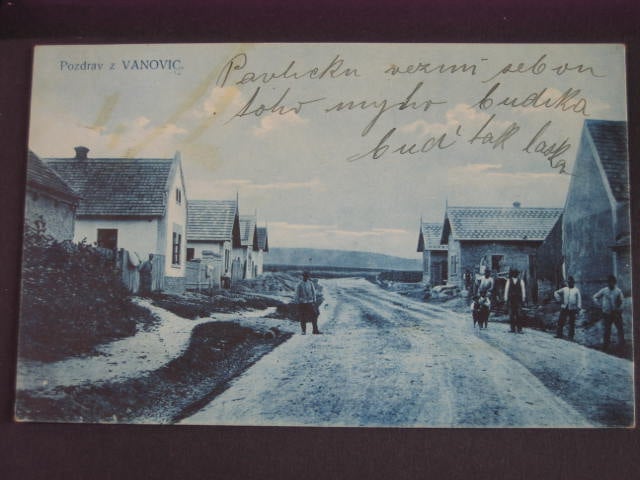 Pozdrav z VANOVIC.
Pavlicku vezmi sebou
toho myho budika
buď tak laska